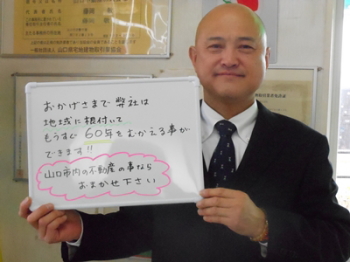 おかげさまで弊社は
地域に根付いて
もうすぐ60年をむかえる事が
できます!!
山口市内の不動産の事なら
おまかせ下さい